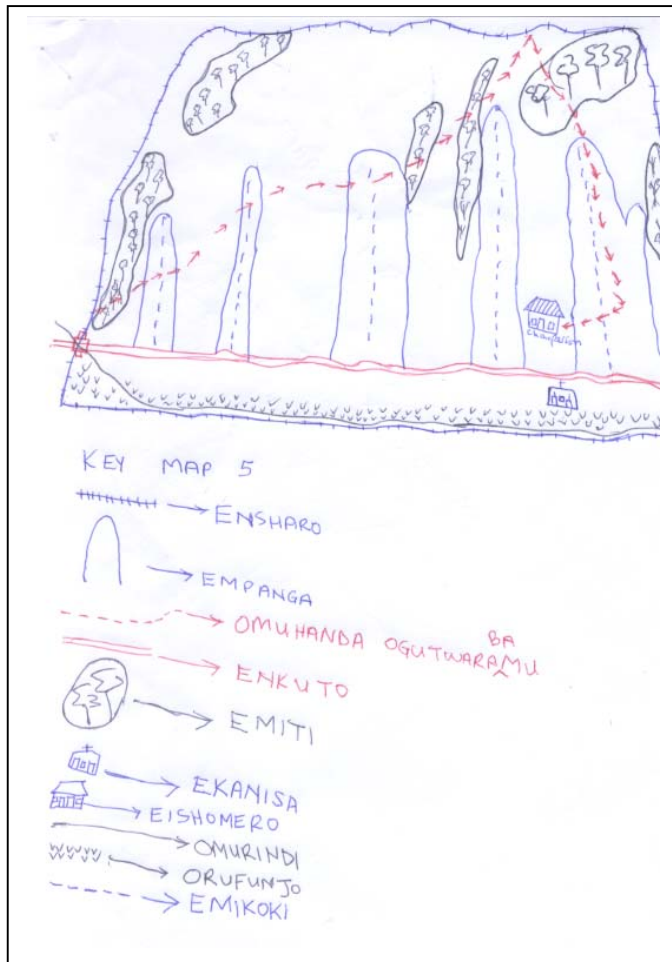 KEY MAP 5
ENSHARO
EMPANGA
OMUHANDA OGUTWARABAMU
ENKUTO
EMITI
EKANISA
EISHOMERO
OMURINDI
ORUFUNJO
EMIKOKI